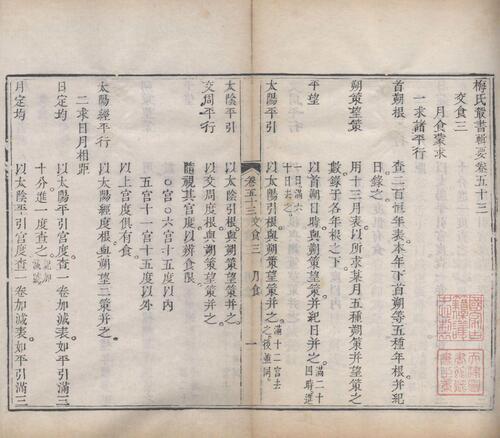 梅氏叢書輯要卷五十三
交食三
月食蒙求
一求諸平行
首朔根　查二百恒年表本年下首朔等五種年根并紀
日錄之
朔策望策　用十三月表以所求某月五種朔策并望策之
數錄于各年根之下
平望　以首朔日時與朔策望策并紀日并之滿二十四時進
一日滿六十日去之
太陽平引　以太陽引根與朔策望策并之滿十二宮去之後並同
太陰平引　以太陰引根與朔策望策并之
交周平行　以交周度根與朔策望策并之
隨視其宮度以辨食限
〇宮〇六宮十五度以內
五宮十一宮十五度以外
以上宮度俱有食
太陽經平行　以太陽經度根與朔望二策并之
二求日月相距
日定均　以太陽平引宮度查一卷加減表如平引滿三
十分進一度查之
月定均　以太陰平引宮度查一卷加減表如平引滿三
卷五十三　交食三　月食　一